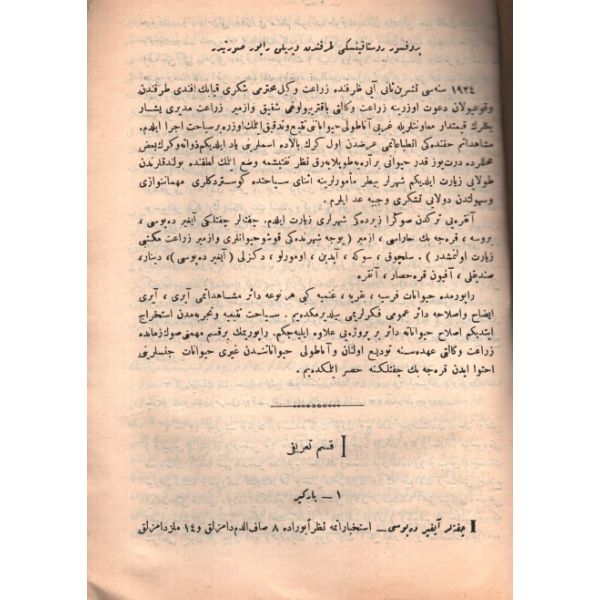 پروفسور روستافینسكی طرفندن ویریلن راپور صورتیدر
١٩٣٤ سنه سی تشرین ثانی آیی ظرفنده زراعت وكیل محترمی شكری قیا بك افندی طرفندن
وقوعبولان دعوت اوزرینه زراعت وكالتی باقتریولوغی شفیق وازمیر زراعت مدیری یشار
بكلرك قیمتدار معاونتلریله غربی آناطولی حیواناتی تتبع وتدقیق ایتمك اوزره برسیاحت اجرا ایلدم.
مشاهداتم حقنده كی انطباعاتمی عرضدن اول كرك بالاده اسملرینی یاد ایلدیكم ذواته وكرك بعض
محللرده درت یوز قدر حیوانی برآره یه طوپلایه رق نظر تفتیشمه وضع ایتمك لطفنده بولندقلرندن
طولایی زیارت ایلدیكم شهرلر بیطر مأمورلرینه اثنای سیاحتده كوستردكلری مهماننوازی
وسهولتدن دولایی تشكری وجیبه عد ایلرم.
آنقره یی تركدن صوكرا زیرده كی شهرلری زیارت ایلدم. چفتلر چفتلكی آیغیر ده پوسی ،
بروسه ، قره جه بك حاراسی ، ازمیر ( بوجه شهرنده كی قوشو حیوانلری وازمیر زراعت مكتبی
زیارت اولنمشدر ) . سلچوق ، سوكه ، آیدین ، اومورلو ، دكزلی ( آیغیر ده پوسی ) ، دینار،
صندیقلی ، آفیون قره حصار ، آنقره .
راپورمده حیوانات فرسیه ، بقریه ، غنمیه كی هر نوعه دائر مشاهداتمی آیری ، آیری
ایضاح واصلاحه دائر عمومی فكرلریمی بیلدیرمكدەیم . سیاحت تتبعیه وتجربه مدن استخراج
ایتدیكم اصلاح حیواناته دائر بر پروژه یی علاوه ایلیه جكم. راپوریمك برقسم مهمنی صوك زمانده
زراعت وكالتی عهده سنه تودیع اولنان و آناطولی حیواناتندن غیری حیوانات جنسلرینی
احتوا ایدن قره جه بك چفتلكنه حصر ایتمكده یم .
I قسم تعریفی
١ – باركیر
I چفتلر آیغیر ده پوسی – استخباراتمه نظراً بوراده ٨ صاف الدم دامیزلق و ١٤ ملز دامیزلق